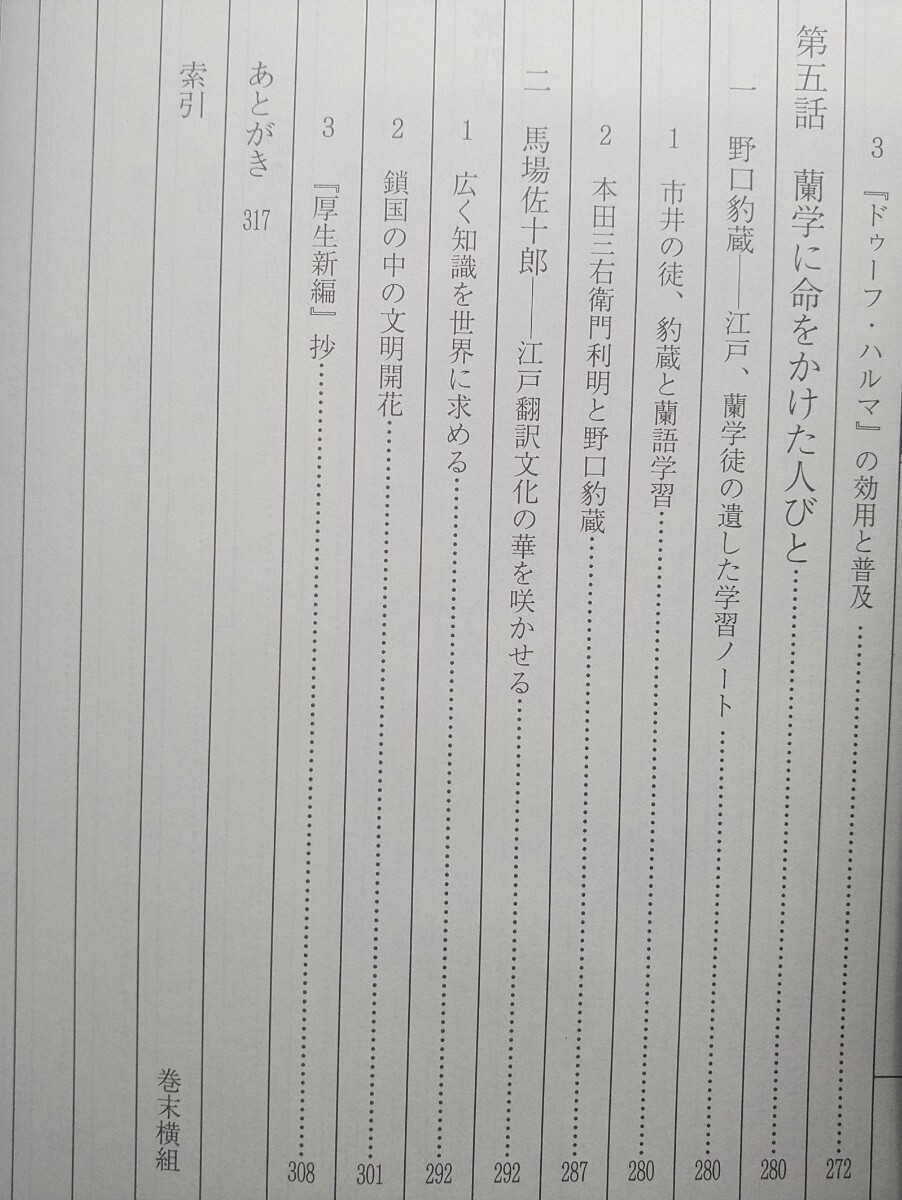 3 『ドゥーフ・ハルマ』の効用と普及……………………272
第五話 蘭学に命をかけた人びと……………………280
一 野口豹蔵――江戸、蘭学徒の遺した学習ノート……………………280
1 市井の徒、豹蔵と蘭語学習……………………280
2 本田三右衛門利明と野口豹蔵……………………287
二 馬場佐十郎――江戸翻訳文化の華を咲かせる……………………292
1 広く知識を世界に求める……………………292
2 鎖国の中の文明開花……………………301
3 『厚生新編』抄……………………308
あとがき 317
索引 巻末横組